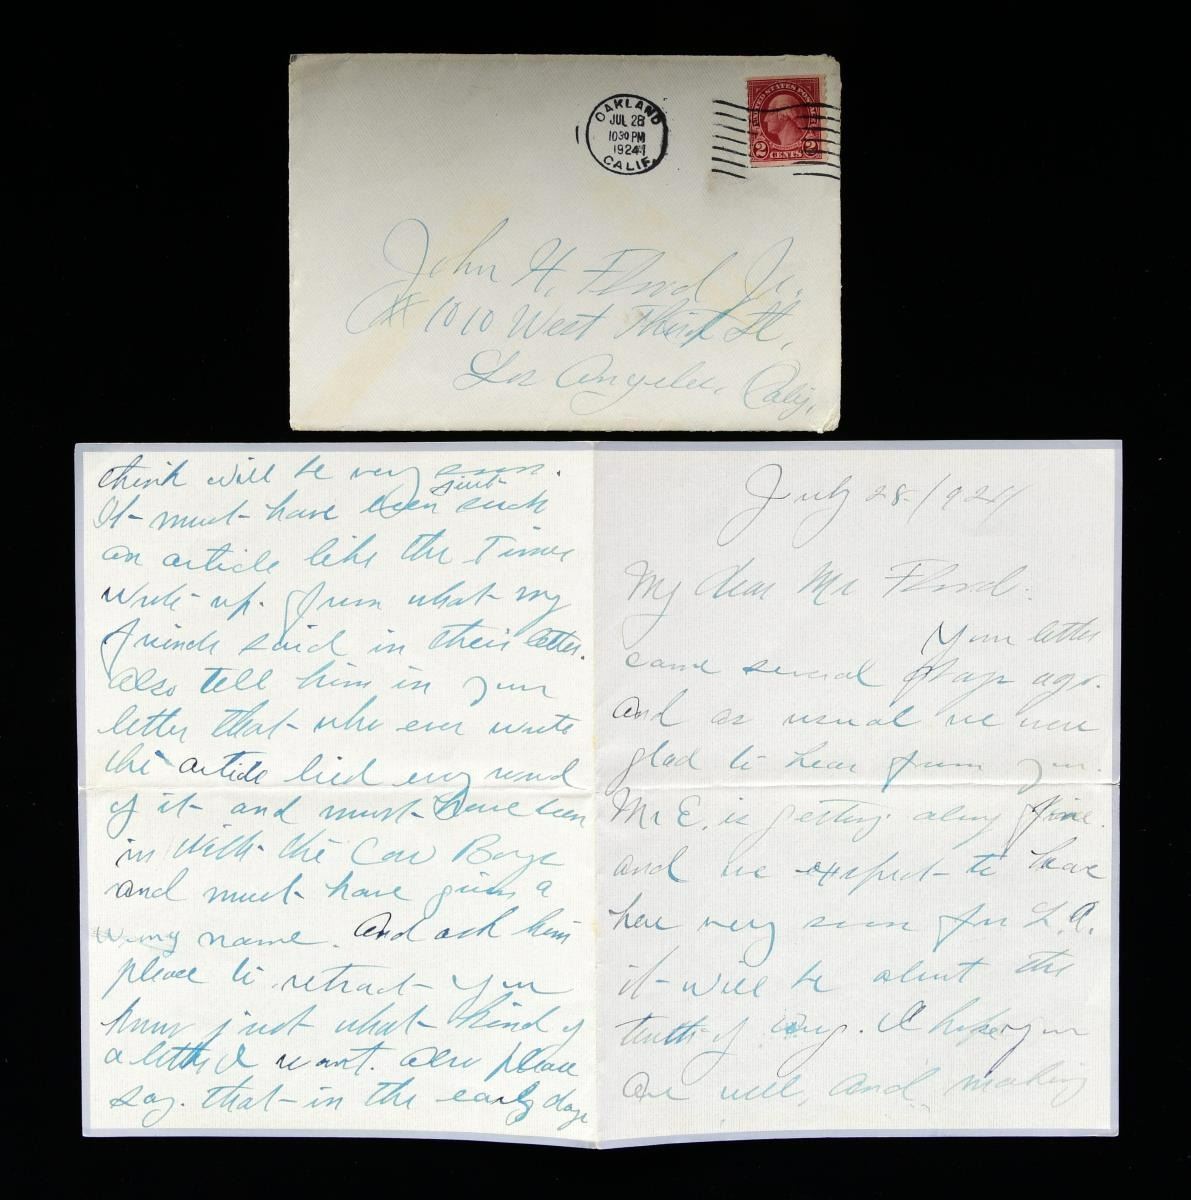 OAKLAND
JUL 28
10 30 PM
1924
CALIF.
UNITED STATES POSTAGE
2 CENTS 2
John H. Flood Jr.
# 1010 West Third St,
Los Angeles, Calif,
think will be very soon.
just
It must have been such
an article like the Times
write up. from what my
friends said in their letter.
Also tell him in your
letter that who ever wrote
the article lied every word
of it and must have been
in with the Cow Boys
and must have given a
wrong name. And ask him
please to retract you
know just what kind of
a letter I want. also please
say. that in the early days
July 28/1924
My dear Mr Flood:
Your letter
came several days ago.
And as usual we were
glad to hear from you.
Mr E. is getting along fine.
and we expect to leave
here very soon for L.A.
it will be about the
tenth of Aug. I hope you
are well, and making